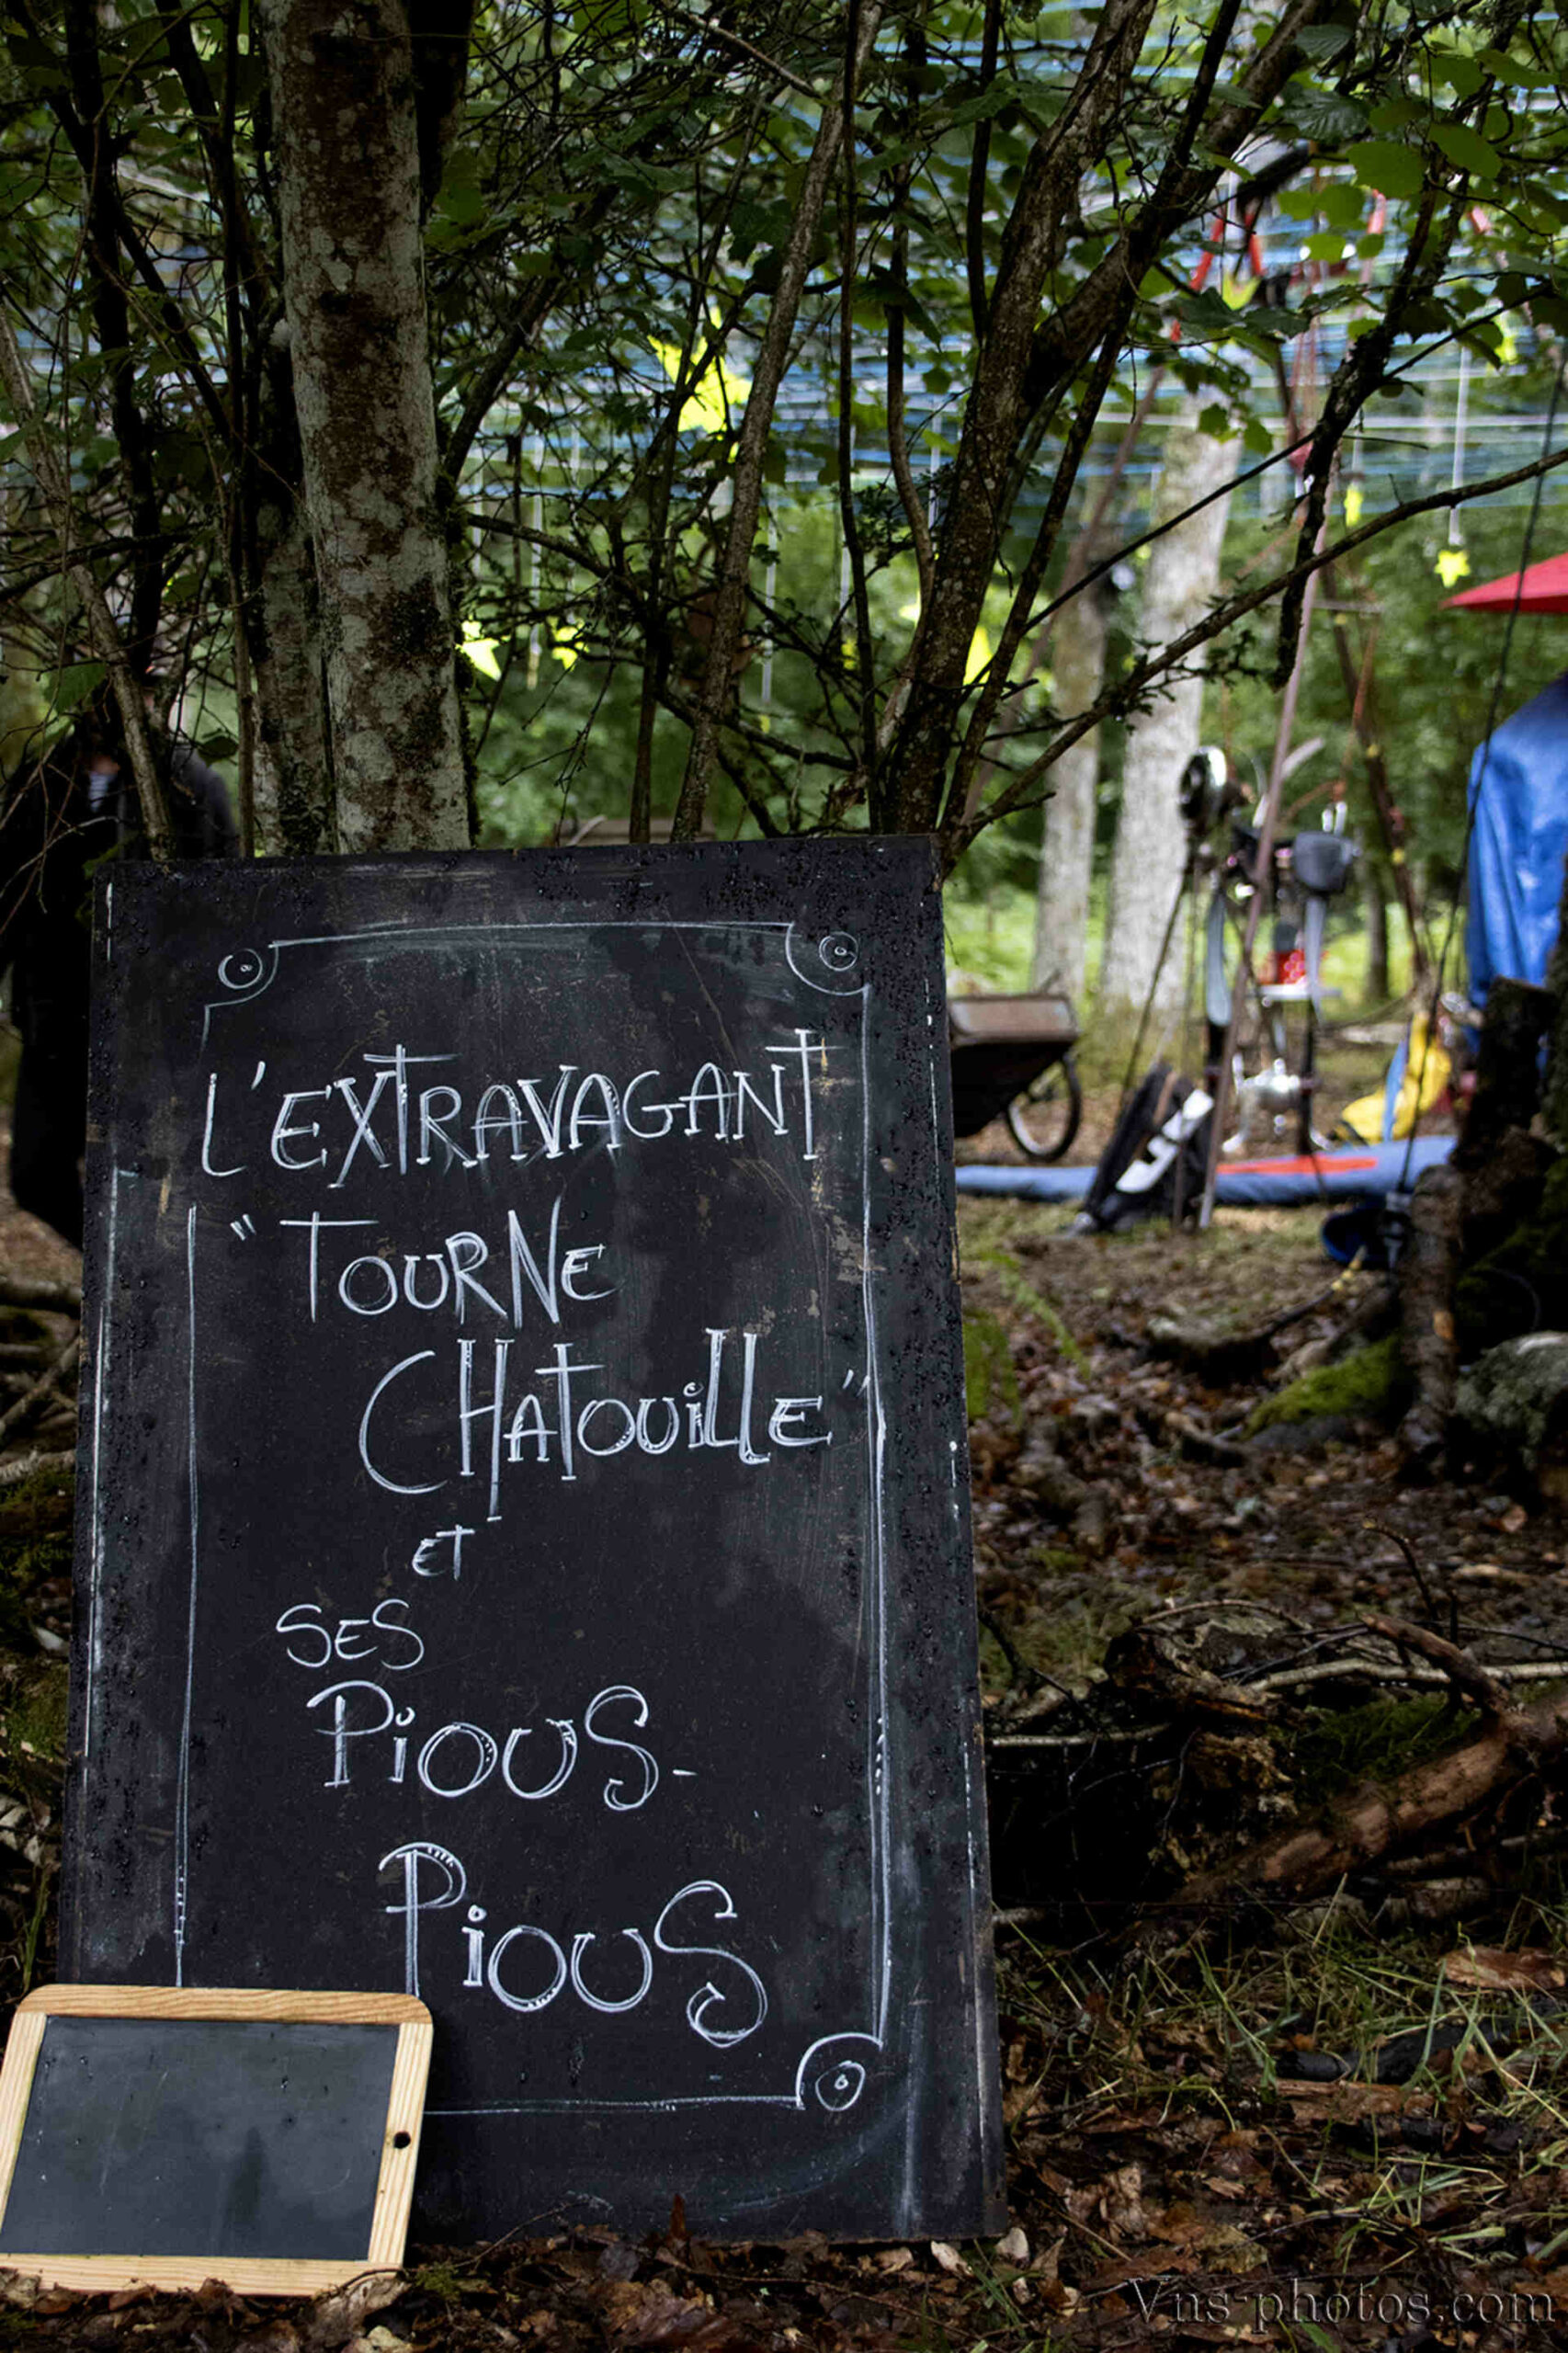 L'EXTRAVAGANT
"TOURNE
CHATOUILLE"
ET
SES
PiOUS-
PiOUS
Vns-photos.com